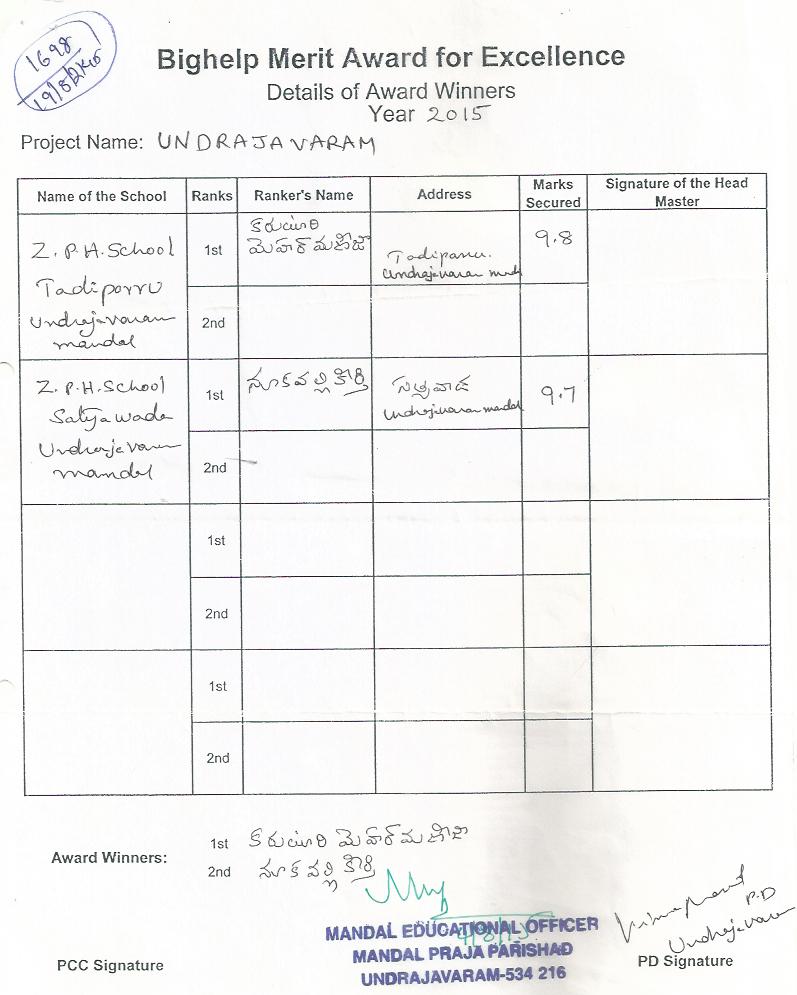 1698
19/8/2K15
Bighelp Merit Award for Excellence
Details of Award Winners
Year 2015
Project Name: UNDRAJAVARAM
Name of the School Ranks Ranker's Name Address Marks Secured Signature of the Head Master
Z.P.H.School
Tadiparru
Undrajavaram
mandal
1st
కరుటూరి
మెహర్ మణిజా
Tadiparru.
Undrajavaram mndl
9.8
2nd
Z.P.H.School
Satyawada
Undrajavaram
mandal
1st
నూకవల్లి కీర్తి
సత్యవాడ
Undrajavaram mandal
9.7
2nd
1st
2nd
1st
2nd
Award Winners:
1st కరుటూరి మెహర్ మణిజా
2nd నూకవల్లి కీర్తి
MANDAL EDUCATIONAL OFFICER
MANDAL PRAJA PARISHAD
UNDRAJAVARAM-534 216
P.D
Undrajavaram
PCC Signature
PD Signature